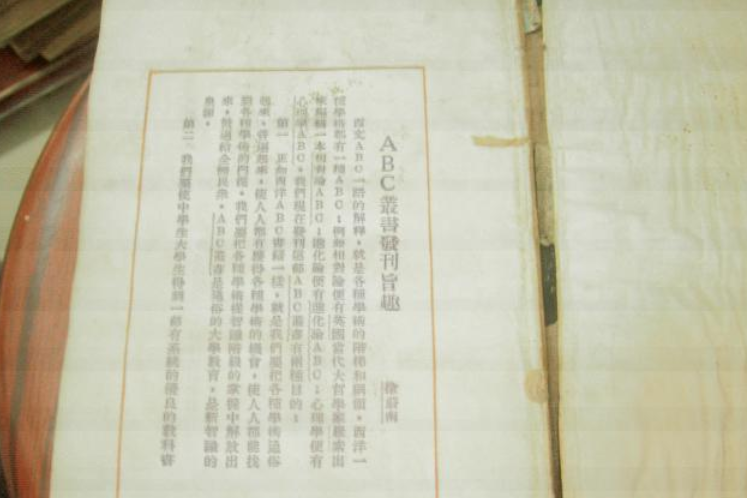 ABC叢書發刊旨趣
徐蔚南
西文ABC一語的解釋,就是各種學術的階梯和綱領。西洋一
種學術都有一種ABC;例如相對論便有英國當代大哲學家羅素出
來編輯一本相對論ABC;進化論便有進化論ABC;心理學便有
心理學ABC。我們現在發刊這部ABC叢書有兩種目的:
第一 正如西洋ABC書籍一樣,就是我們要把各種學術通俗
起來,普遍起來,使人人都有獲得各種學術的機會,使人人都能找
到各種學術的門徑。我們要把各種學術從智識階級的掌握中解放出
來,散遍給全體民衆。ABC叢書是通俗的大學教育,是新智識的
泉源。
第二 我們要使中學生大學生得到一部有系統的優良的教科書